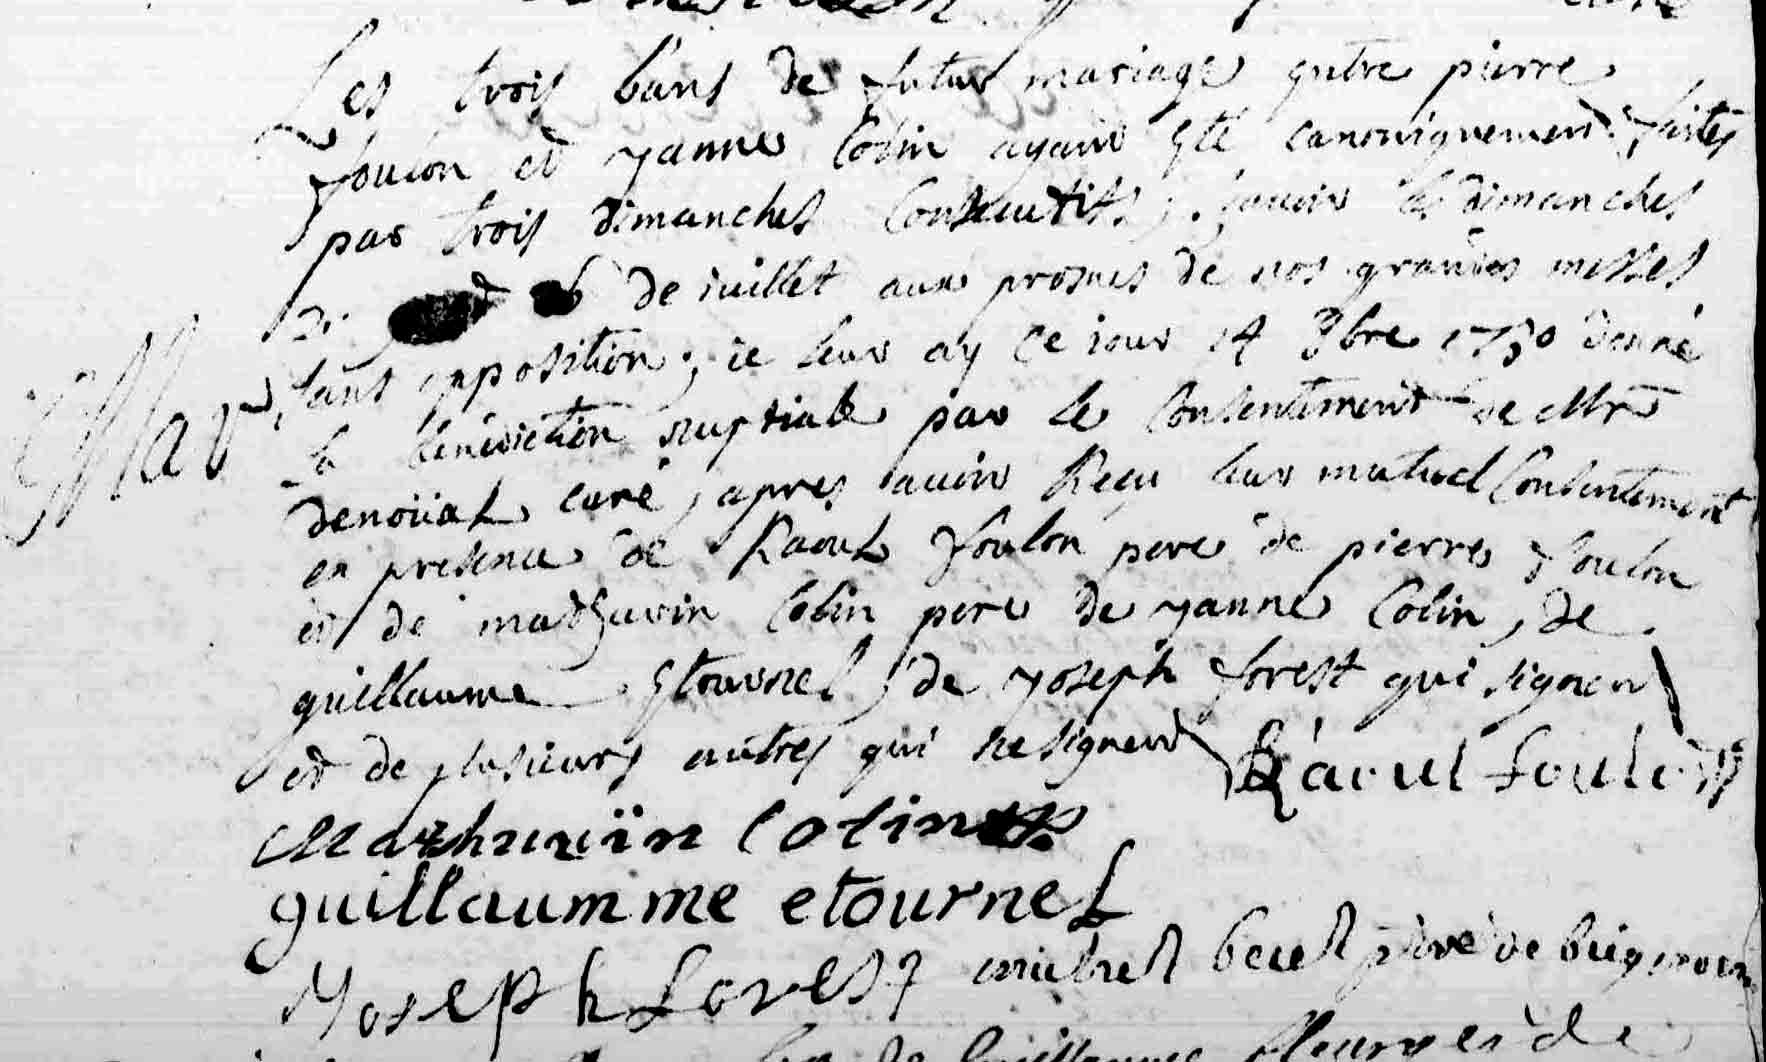 Les trois bans de futur mariage entre pierre
foulon et yanne Colin ayant esté canoniquement faites
par trois dimanches Consecutifs, scavoir les dimanches
26 de iuillet aux prosnes de nos grandes messes
sans opposition, ie leur ay Ce iour 14 1730 donné
la bénédiction nuptiale par le Consentement de Mr
Mar
denoüal curé, apres avoir Reçu leur mutuel Consentement
en presence de Raoul foulon pere de pierre foulon
et de mathurin Colin pere de yanne Colin, de
guillaume Etournel, de yoseph forest qui signent
et de plusieurs autres qui ne signent Raoul foulon
Mathuriin Colin
guillaumme etournel
Yoseph Forest michel
de guillaume